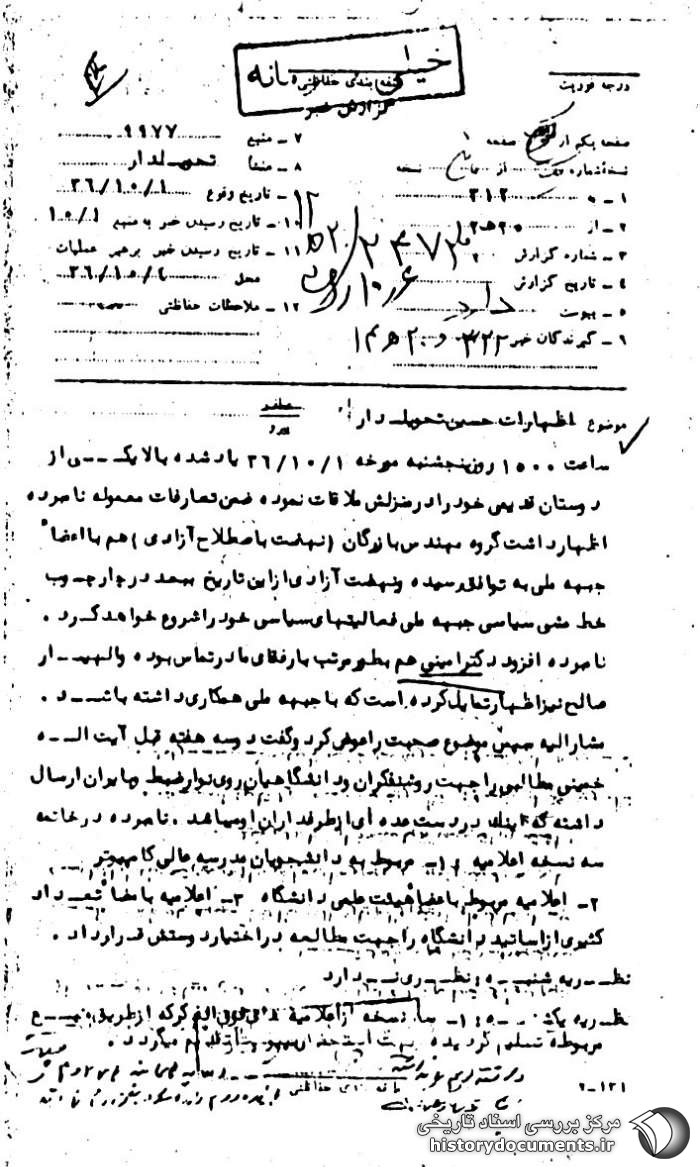 خیلی محرمانه
طبقه بندی حفاظتی
گزارش خبر
درجه فوریت
صفحه یکم از صفحه ۱
نسخه شماره از نسخه
۱ - به ۳۱۲
۲ - از ۲۰ه۱۲
۳ - شماره گزارش
۴ - تاریخ گزارش
۵ - پیوست دارد
۶ - گیرندگان خبر ۳۲۲ و ۲۰ ه‍
۷ - منبع ۹۹۷۷
۸ - منشا تحویلدار
۹ - تاریخ وقوع ۳۶/۱۰/۱
۱۰ - تاریخ رسیدن خبر به منبع ۱۰/۱
۱۱ - تاریخ رسیدن خبر برهبر عملیات
محل
۱۲ - ملاحظات حفاظتی
موضوع اظهارات حسین تحویلدار
عطف
پیرو
ساعت ۱۵۰۰ روز پنجشنبه مورخه ۳۶/۱۰/۱ یادشده بالا یکی از
دوستان قدیمی خود را در منزلش ملاقات نموده ضمن تعارفات معموله نامبرده
اظهار داشت گروه مهندس بازرگان (نهضت باصطلاح آزادی) هم با اعضاء
جبهه ملی به توافق رسیده و نهضت آزادی از این تاریخ ببعد در چارچوب
خط مشی سیاسی جبهه ملی فعالیتهای سیاسی خود را شروع خواهد کرد .
نامبرده افزود دکتر امینی هم بطور مرتب با رفقای ما در تماس بوده و الهیار
صالح نیز اظهار تمایل کرده است که با جبهه ملی همکاری داشته باشد .
مشارالیه سپس موضوع صحبت را عوض کرد و گفت دو سه هفته قبل آیت اله
خمینی مطالبی را جهت روشنفکران و دانشگاهیان روی نوار ضبط و بایران ارسال
داشته که اینک در دست عده ای از طرفداران او میباشد . نامبرده در خاتمه
سه نسخه اعلامیه ۱- مربوط به دانشجویان مدرسه عالی کامپیوتر
۲- اعلامیه مربوط باعضا هیئت علمی دانشگاه ۳- اعلامیه بامضاء تعداد
کثیری از اساتید دانشگاه را جهت مطالعه در اختیار دوستش قرار داد .
نظریه شنبه : نظری ندارد
نظریه یکشنبه : ۱- سه نسخه از اعلامیه های فوق الذکر که از طریق منبع
مربوطه تسلیم گردیده به پیوست تقدیم میگردد .
طبقه بندی حفاظتی
۲-۱۲۱
مرکز بررسی اسناد تاریخی
historydocuments.ir